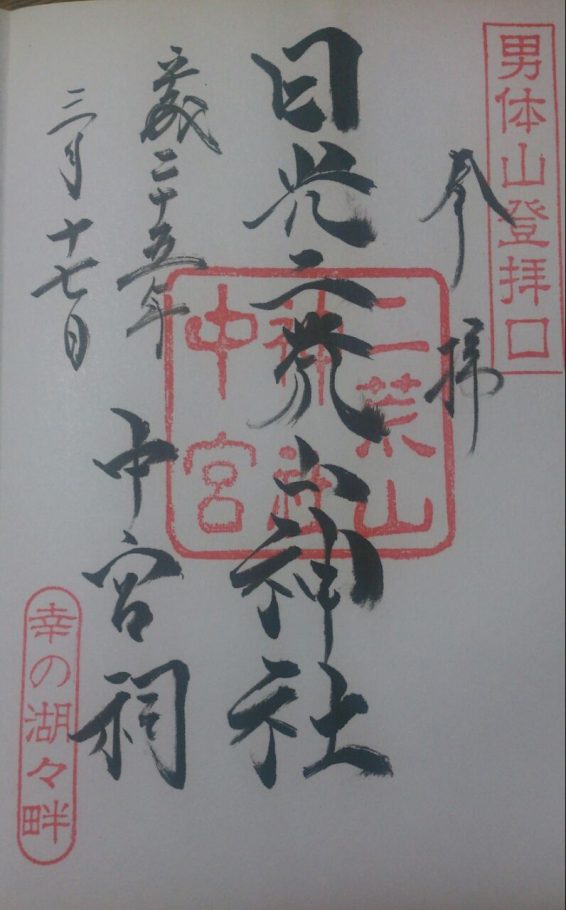 男体山登拝口
奉拝
日光二荒山神社
中宮祠
二荒山
神社
中宮
平成二十五年
三月十七日
幸の湖々畔